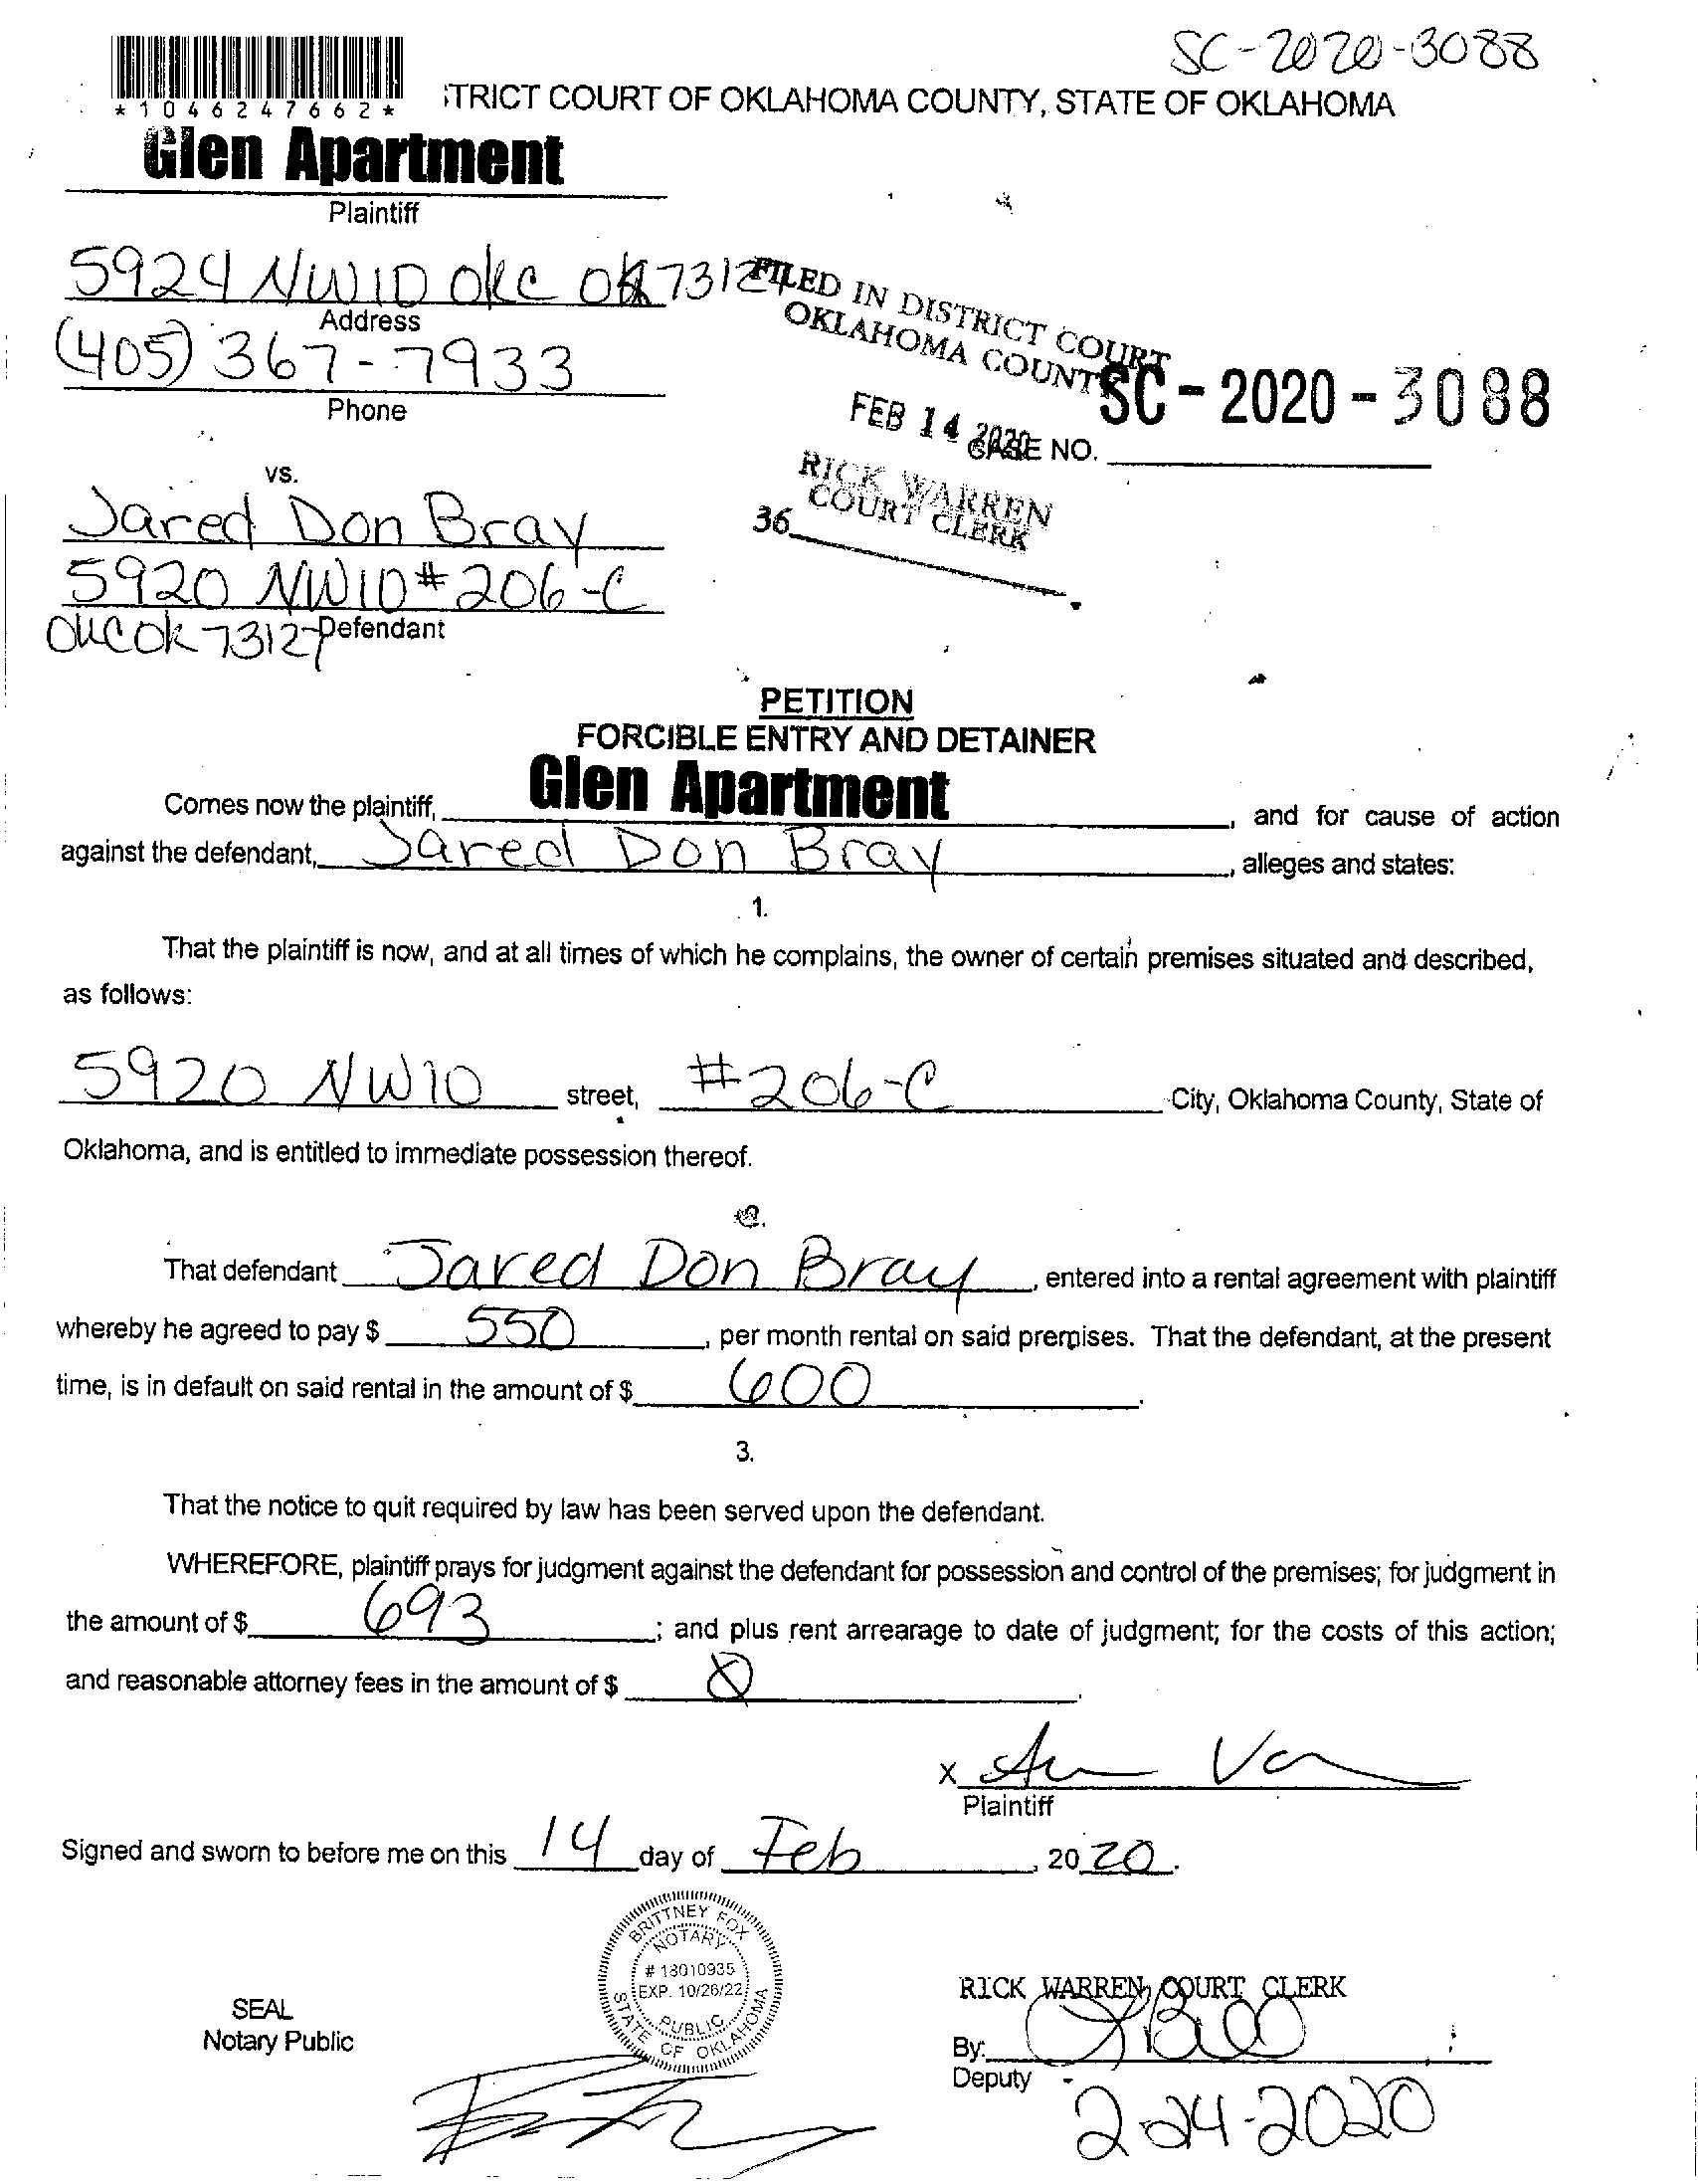 SC-2020-3088
*1046247662*
STRICT COURT OF OKLAHOMA COUNTY, STATE OF OKLAHOMA
Glen Apartment
Plaintiff
5924 NW10 OKC OK 73127
Address
(405) 367-7933
Phone
FILED IN DISTRICT COURT
OKLAHOMA COUNTY
FEB 14 2020
SC-2020-3088
CASE NO.
RICK WARREN
COURT CLERK
36
vs.
Jared Don Bray
5920 NW10 #206-C
OKC OK 73127
Defendant
PETITION
FORCIBLE ENTRY AND DETAINER
Comes now the plaintiff, Glen Apartment, and for cause of action
against the defendant, Jared Don Bray, alleges and states:
1.
That the plaintiff is now, and at all times of which he complains, the owner of certain premises situated and described,
as follows:
5920 NW10 street, #206-C City, Oklahoma County, State of
Oklahoma, and is entitled to immediate possession thereof.
2.
That defendant Jared Don Bray, entered into a rental agreement with plaintiff
whereby he agreed to pay $ 550, per month rental on said premises. That the defendant, at the present
time, is in default on said rental in the amount of $ 600.
3.
That the notice to quit required by law has been served upon the defendant.
WHEREFORE, plaintiff prays for judgment against the defendant for possession and control of the premises; for judgment in
the amount of $ 693; and plus rent arrearage to date of judgment; for the costs of this action;
and reasonable attorney fees in the amount of $ 0.
X
Plaintiff
Signed and sworn to before me on this 14 day of Feb, 2020.
BRITTNEY FOX
NOTARY
# 18010935
EXP. 10/26/22
PUBLIC
STATE OF OKLAHOMA
SEAL
Notary Public
RICK WARREN, COURT CLERK
By:
Deputy
2-24-2020